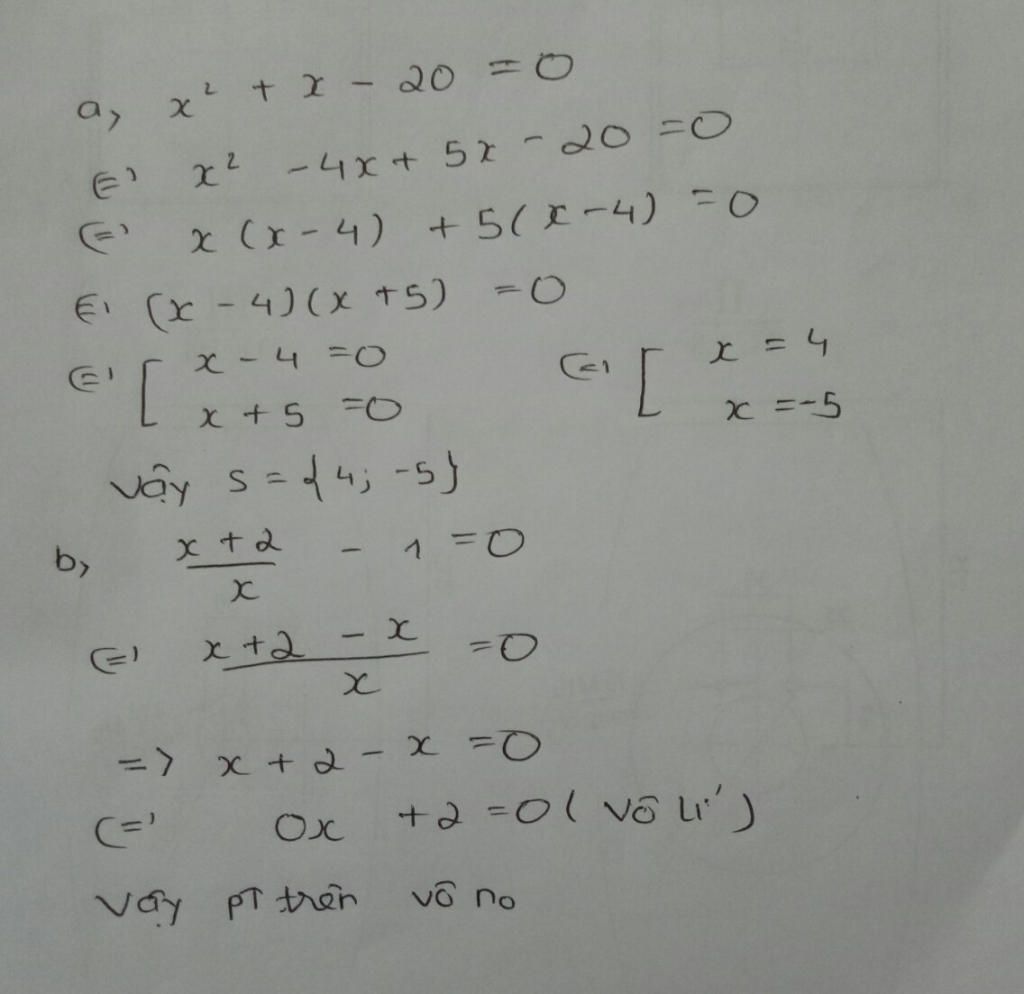 a, x² + x - 20 = 0
<=> x² - 4x + 5x - 20 = 0
<=> x (x - 4) + 5(x - 4) = 0
<=> (x - 4)(x + 5) = 0
<=> [ x - 4 = 0 <=> [ x = 4
x + 5 = 0 x = -5
Vậy S = {4; -5}
b, (x + 2)/x - 1 = 0
<=> (x + 2 - x)/x = 0
=> x + 2 - x = 0
<=> 0x + 2 = 0 ( vô lí )
Vậy pT trên vô no